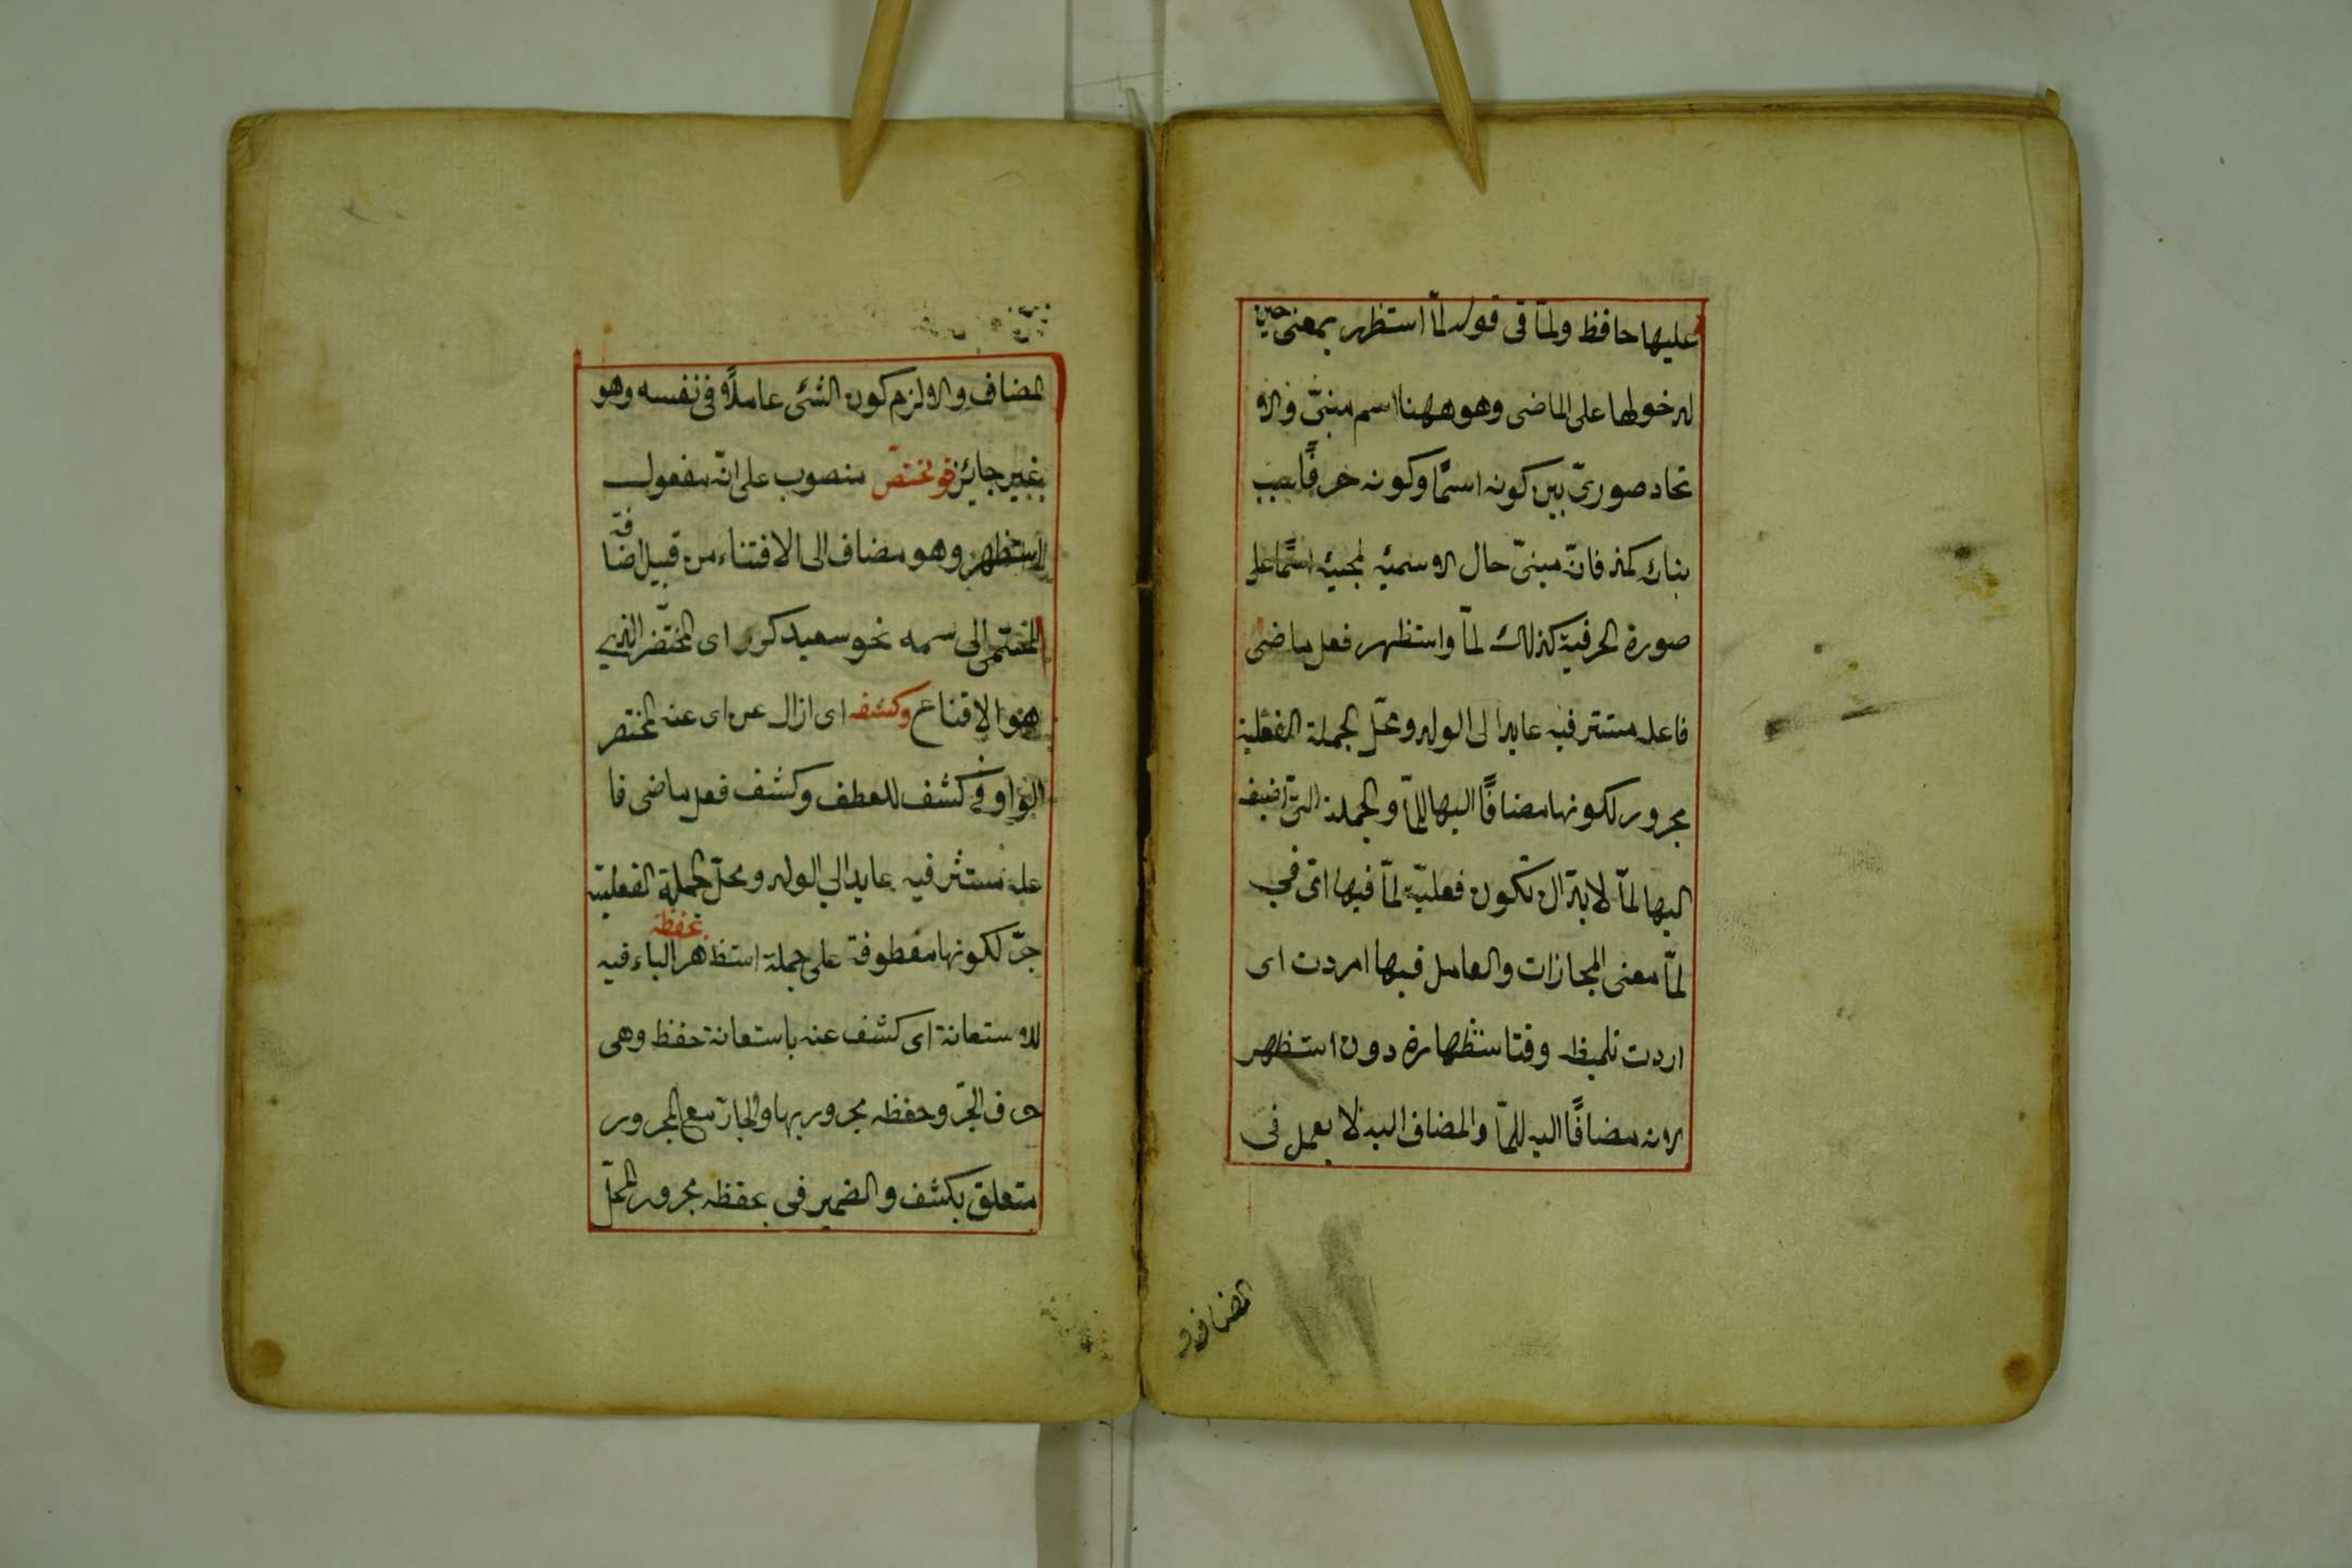 عليها حافظ ولمّا فى قوله لمّا استظهر بمعنى حين
لدخولها على الماضى وهو ههنا اسم مبنىّ والا
تحاد صورىّ بين كونه اسمًا وكونه حرفًا سبب
بنائه كمذ فانّه مبنىّ حال الاسميّه لمجيئه اسمًا على
صورة الحرفية كذلك لمّا واستظهر فعل ماضى
فاعله مستتر فيه عايد الى الولد ومحلّ الجملة الفعلية
مجرور لكونها مضافًا اليها للمّا والجملة التى اضيف
اليها لمّا لا بدّ ان تكون فعليّة لمّا فيها اى فى
لمّا معنى المجازات والعامل فيها اردت اى
اردت تلميظه وقت استظهاره دون استظهر
لانه مضافًا اليه للمّا والمضاف اليه لا يعمل فى
المضاف و
المضاف والا لزم كون الشئ عاملاً فى نفسه وهو
غير جائز مختصر منصوب على انّه مفعول
استظهر وهو مضاف الى الاقناع من قبيل اضافة
المسمى الى اسمه نحو سعيد كرز اى المختصر الذى
هو الاقناع وكشف اى ازال عن اى عنه المختصر
الواو فى كشف للعطف وكشف فعل ماضى فا
عله مستتر فيه عايد الى الولد ومحلّ الجملة الفعلية
جرّ لكونها معطوفة على جملة استظهر بحفظه الباء فيه
للاستعانة اى كشف عنه باستعانة حفظ وهى
حرف الجرّ وحفظه مجرور بها والجارّ مع المجرور
متعلق بكشف والضمير فى بحفظه مجرور المحلّ